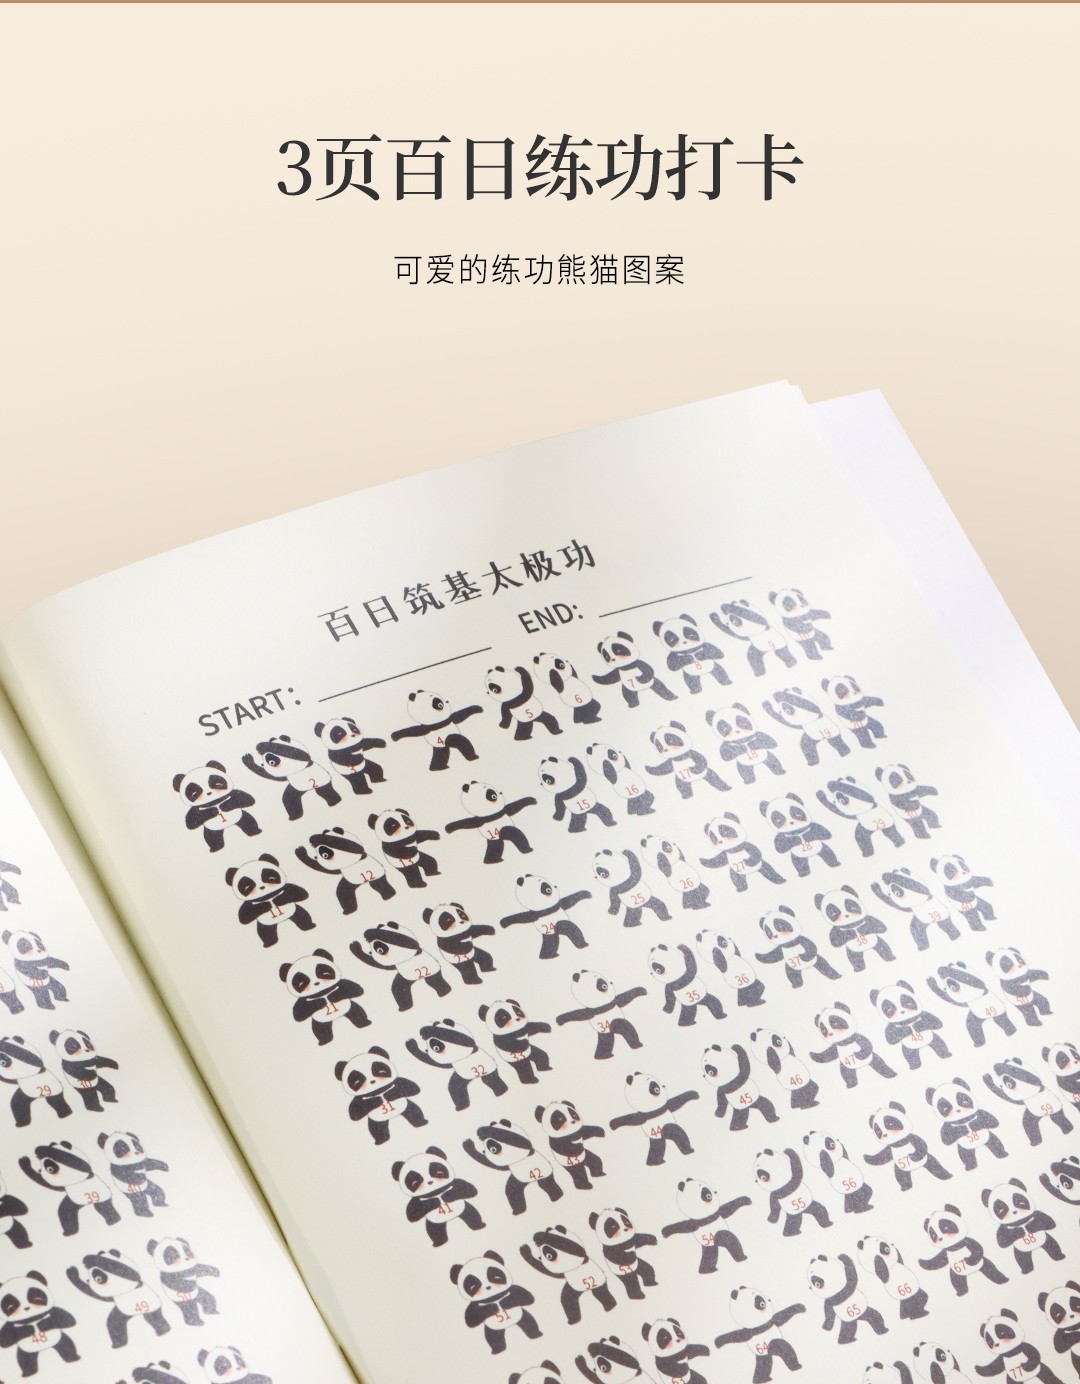 3页百日练功打卡
可爱的练功熊猫图案
百日筑基太极功
START: END:
1 2 3 4 5 6 7 8 9
11 12 13 14 15 16 17 18 19 20
21 22 23 24 25 26 27 28 29 30
31 32 33 34 35 36 37 38 39 40
41 42 43 44 45 46 47 48 49 50
51 52 53 54 55 56 57 58 59
64 65 66 67 68
77
29 30
39 40
48 49 50